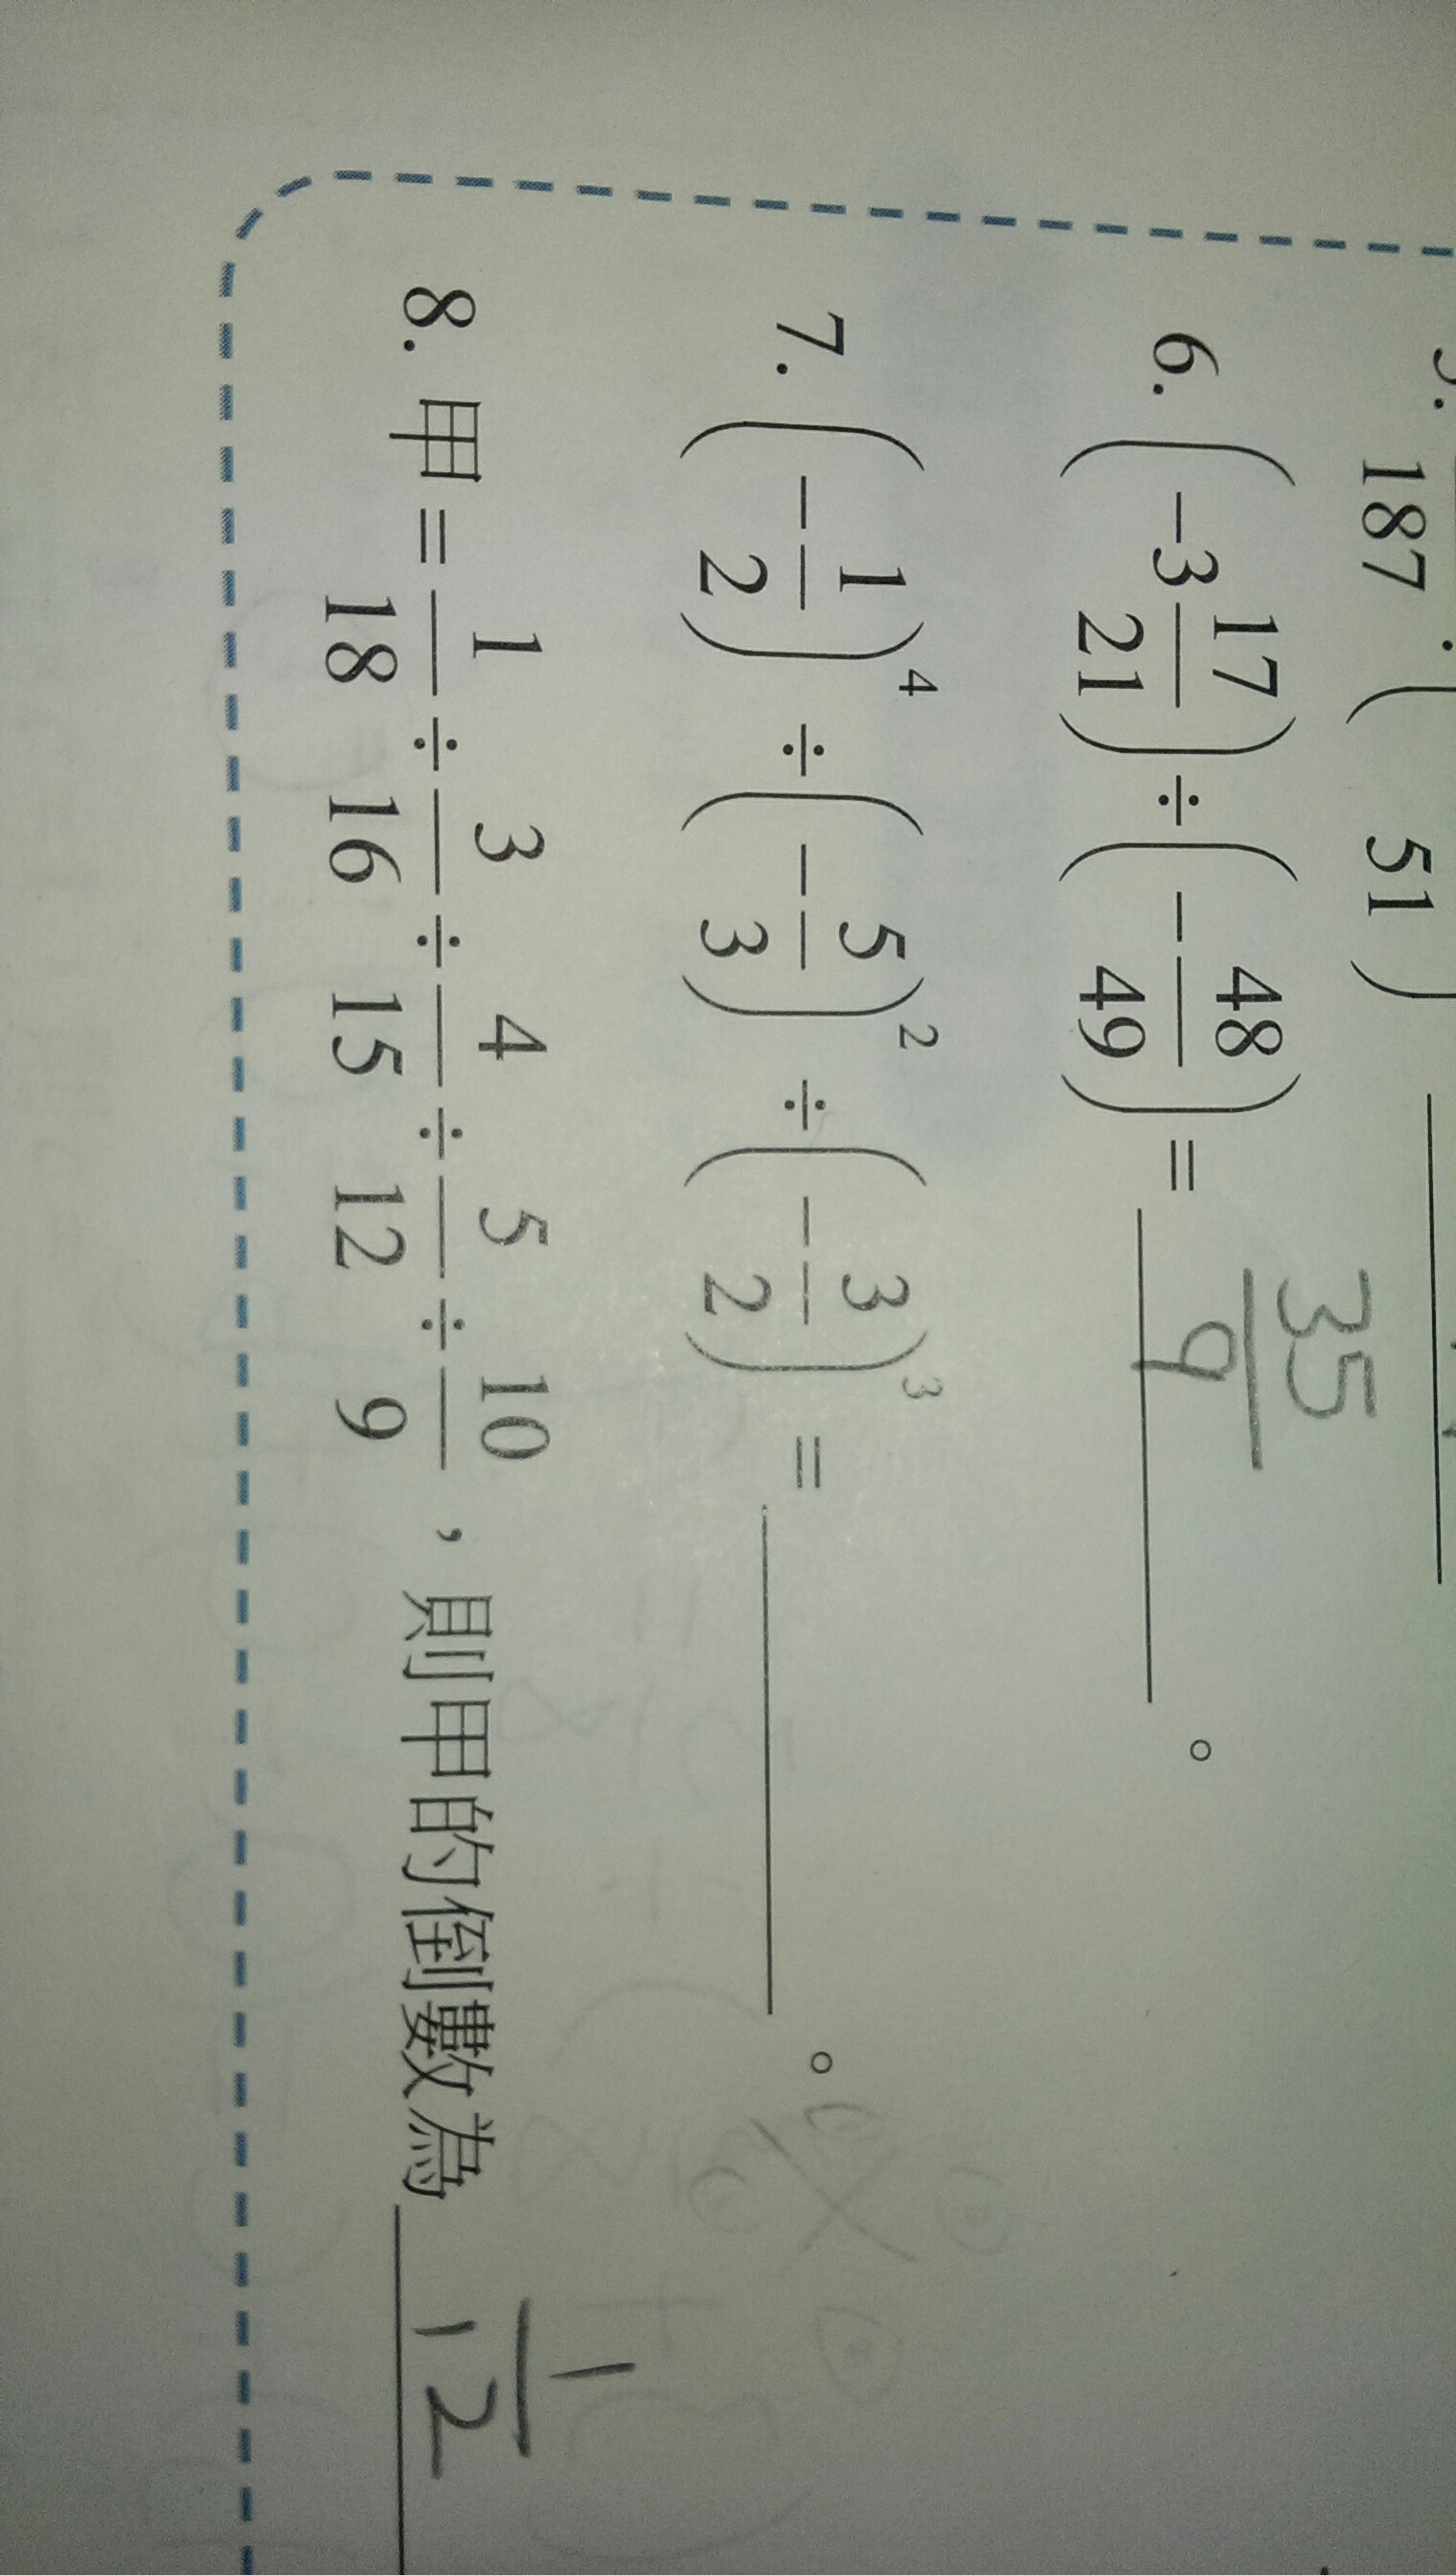 187 ÷ ( 51 )
6. (-3 17/21) ÷ (-48/49) = 35/9 。
7. (-1/2)⁴ ÷ (-5/3)² ÷ (-3/2)³ = 。
8. 甲 = 1/18 ÷ 3/16 ÷ 4/15 ÷ 5/12 ÷ 10/9 ,則甲的倒數為 1/12